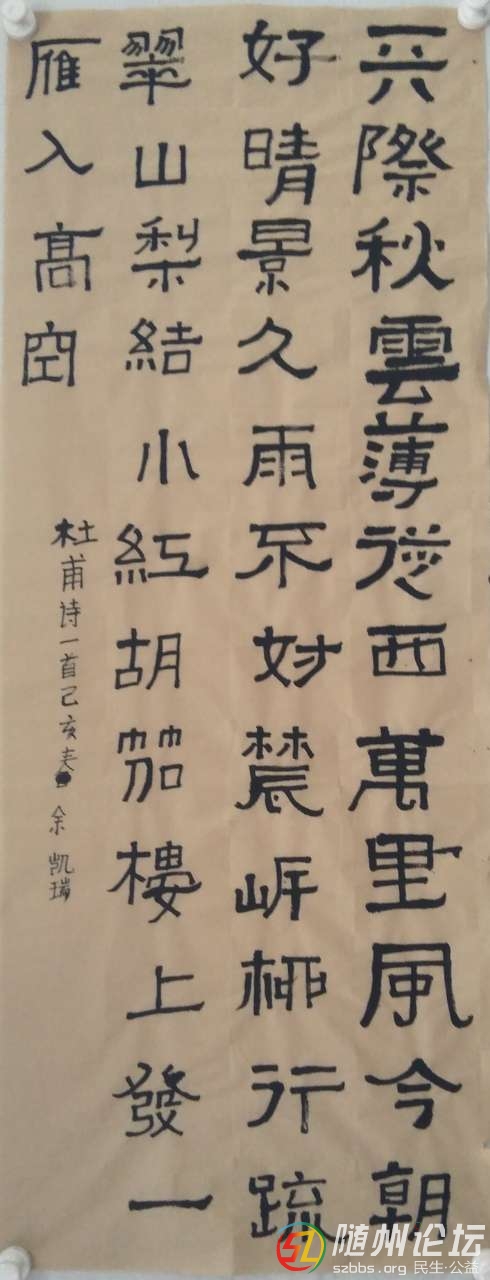 天際秋雲薄從西萬里風今朝
好晴景久雨不妨辳岸柳行疏
翠山梨結小紅胡笳樓上發一
雁入髙空
杜甫诗一首己亥春 余凯瑞
随州论坛
szbbs.org 民生·公益